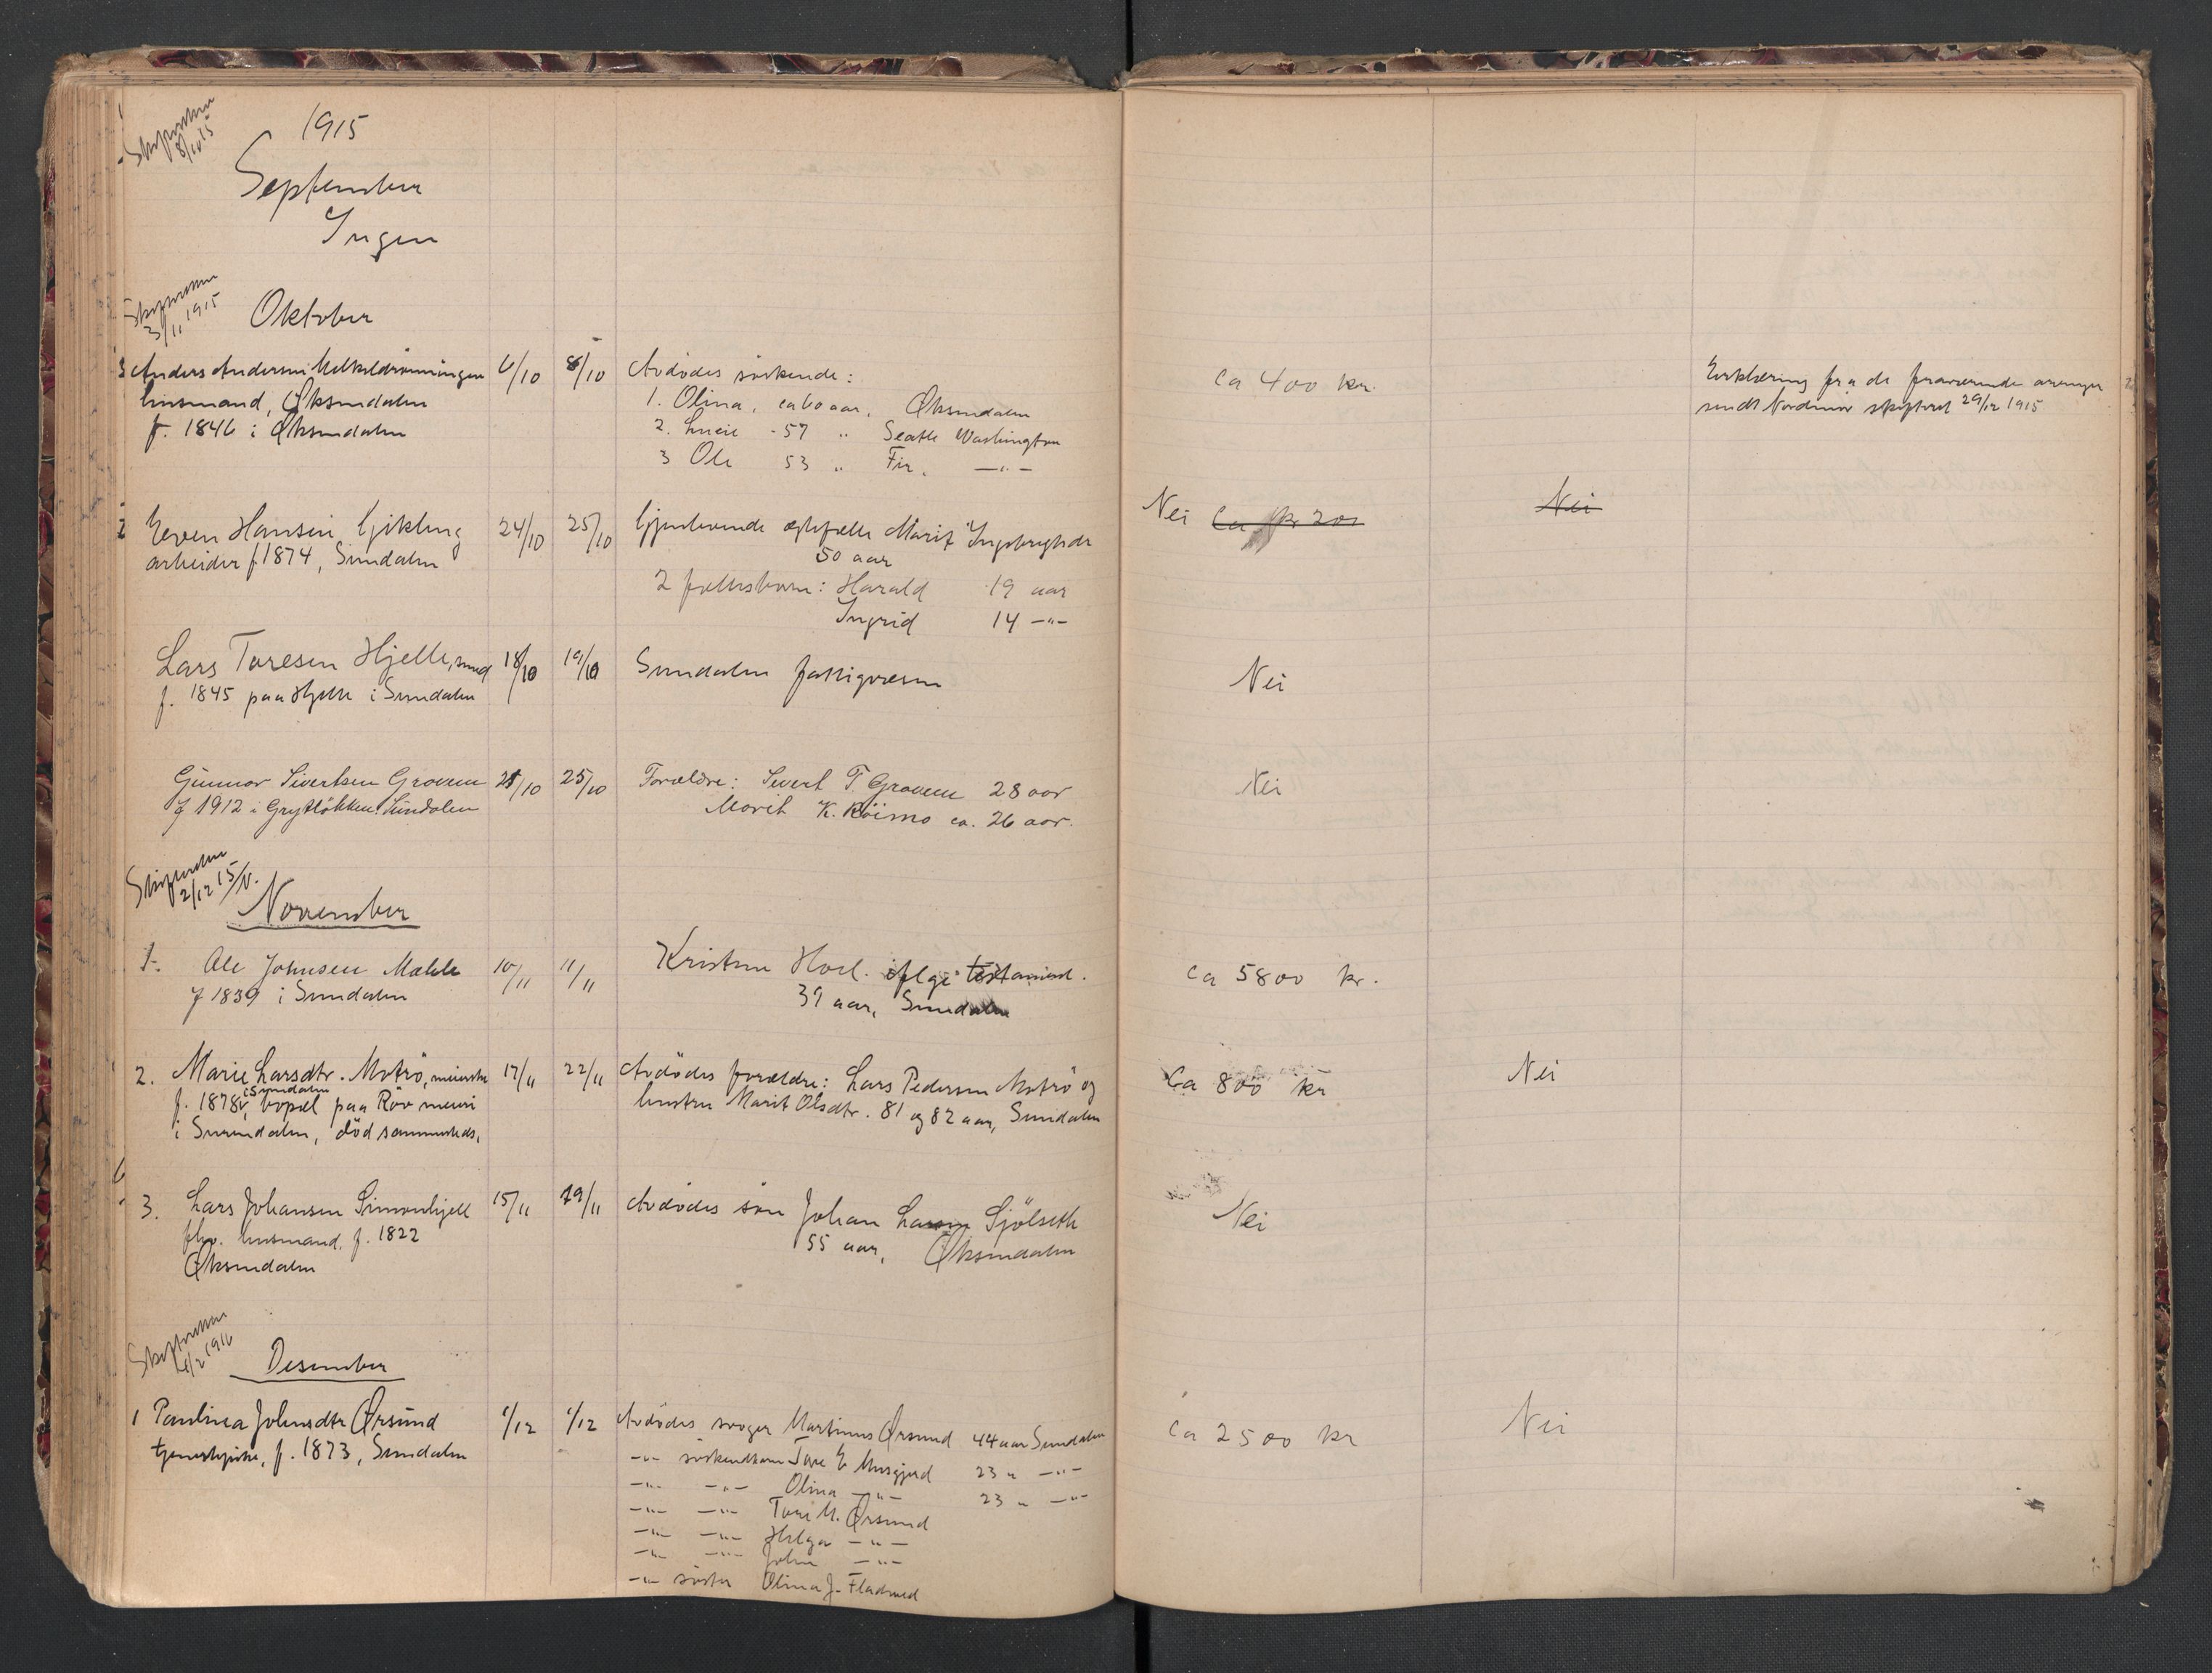 8/10 15
1915
September
Ingen
3/11 1915
Oktober
Anders Andersen
husmand, Øksendalen
f. 1846 i Øksendalen
6/10 8/10
Avdødes søskende:
1. Olina, ca 60 aar, Øksendalen
2. - 57 " Seatle Washington
3 Ole 53 " -"-
ca 400 kr.
Erklæring fra de fraværende arvinger
sendt Nordmør skifteret 29/12 1915
2 Even Hansen Gjikling
arbeider f 1874, Sundalen
24/10 25/10
Gjenlevende egtefælle Marit Ingebrigtsdr
50 aar
2 fællesbarn: Harald 19 aar
Ingrid 14 -"-
Nei Ca kr 200
Nei
Lars Toresen Hjelle,
f. 1845 paa Hjelle i Sundalen
18/10 19/10
Sundalen fattigvæsen
Nei
Gunnar Sivertsen Grovem
f 1912 i Grytløkken Sundalen
25/10
Forældre: Sivert T. Grovem 28 aar
Marit K. Röimo ca. 26 aar.
Nei
2/12 15/N.
November
1. Ole Johnsen Mæhle
f 1839 i Sundalen
10/11 11/11
Kristen Hoel. ifølge testament.
39 aar, Sundalen
ca 5800 kr.
2. Marie Larsdtr. Motrö, meierske
i Sundalen
f. 1878, bopæl paa Röv meieri
i Surendalen, död sammesteds.
17/11 22/11
Avdödes forældre: Lars Pedersen Motrö og
hustru Marit Olsdtr. 81 og 82 aar, Sundalen
Ca 800 kr
Nei
3. Lars Johansen Simonhjell
fhv. husmand. f. 1822
Øksendalen
15/11 19/11
Avdødes søn Johan Larsen Sjölseth
55 aar, Øksendalen
Nei
1916
Desember
1 Paulina Johnsdtr Ørsund
tjenestepike, f. 1873, Sundalen
1/12 1/12
Avdødes svoger Martinus Ørsund 44 aar Sundalen
-"- søskendbarn Tore E Musgjerd 23 " -"-
-"- -"- Olina -"- 23 " -"-
-"- -"- Tore M. Ørsund
-"- -"- Helga -"-
-"- -"- John -"-
-"- søster Olina J. Fladvad
ca 2500 kr
Nei